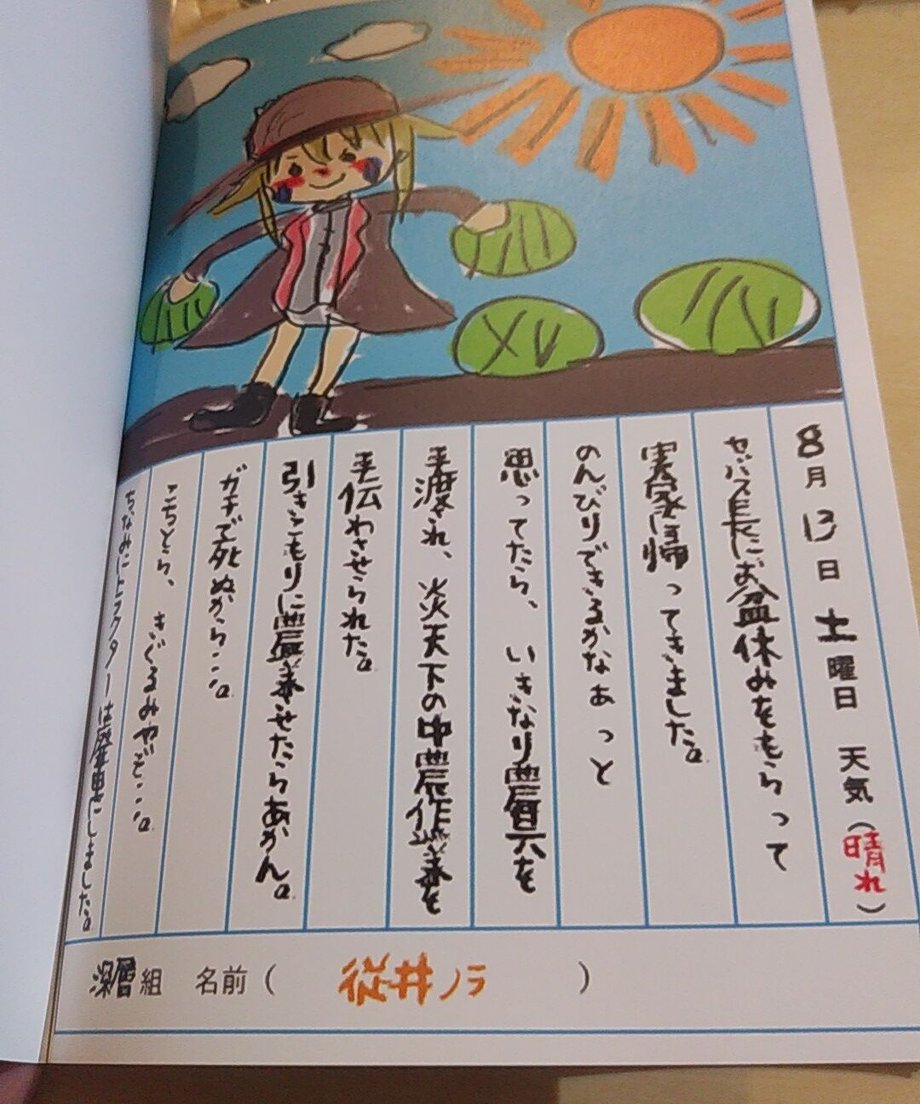 8月13日 土曜日 天気(晴れ)
セバス長にお盆休みをもらって
実家に帰ってきました。
のんびりできるかなぁっと
思ってたら、いきなり農具を
手渡され、炎天下の中農作業を
手伝わさせられた。
引きこもりに農業させたらあかん。
ガチで死ぬから…。
こちとら、きぐるみやぞ…。
ちなみにトラクターは廃車にしました。
深層組 名前( 従井ノラ )